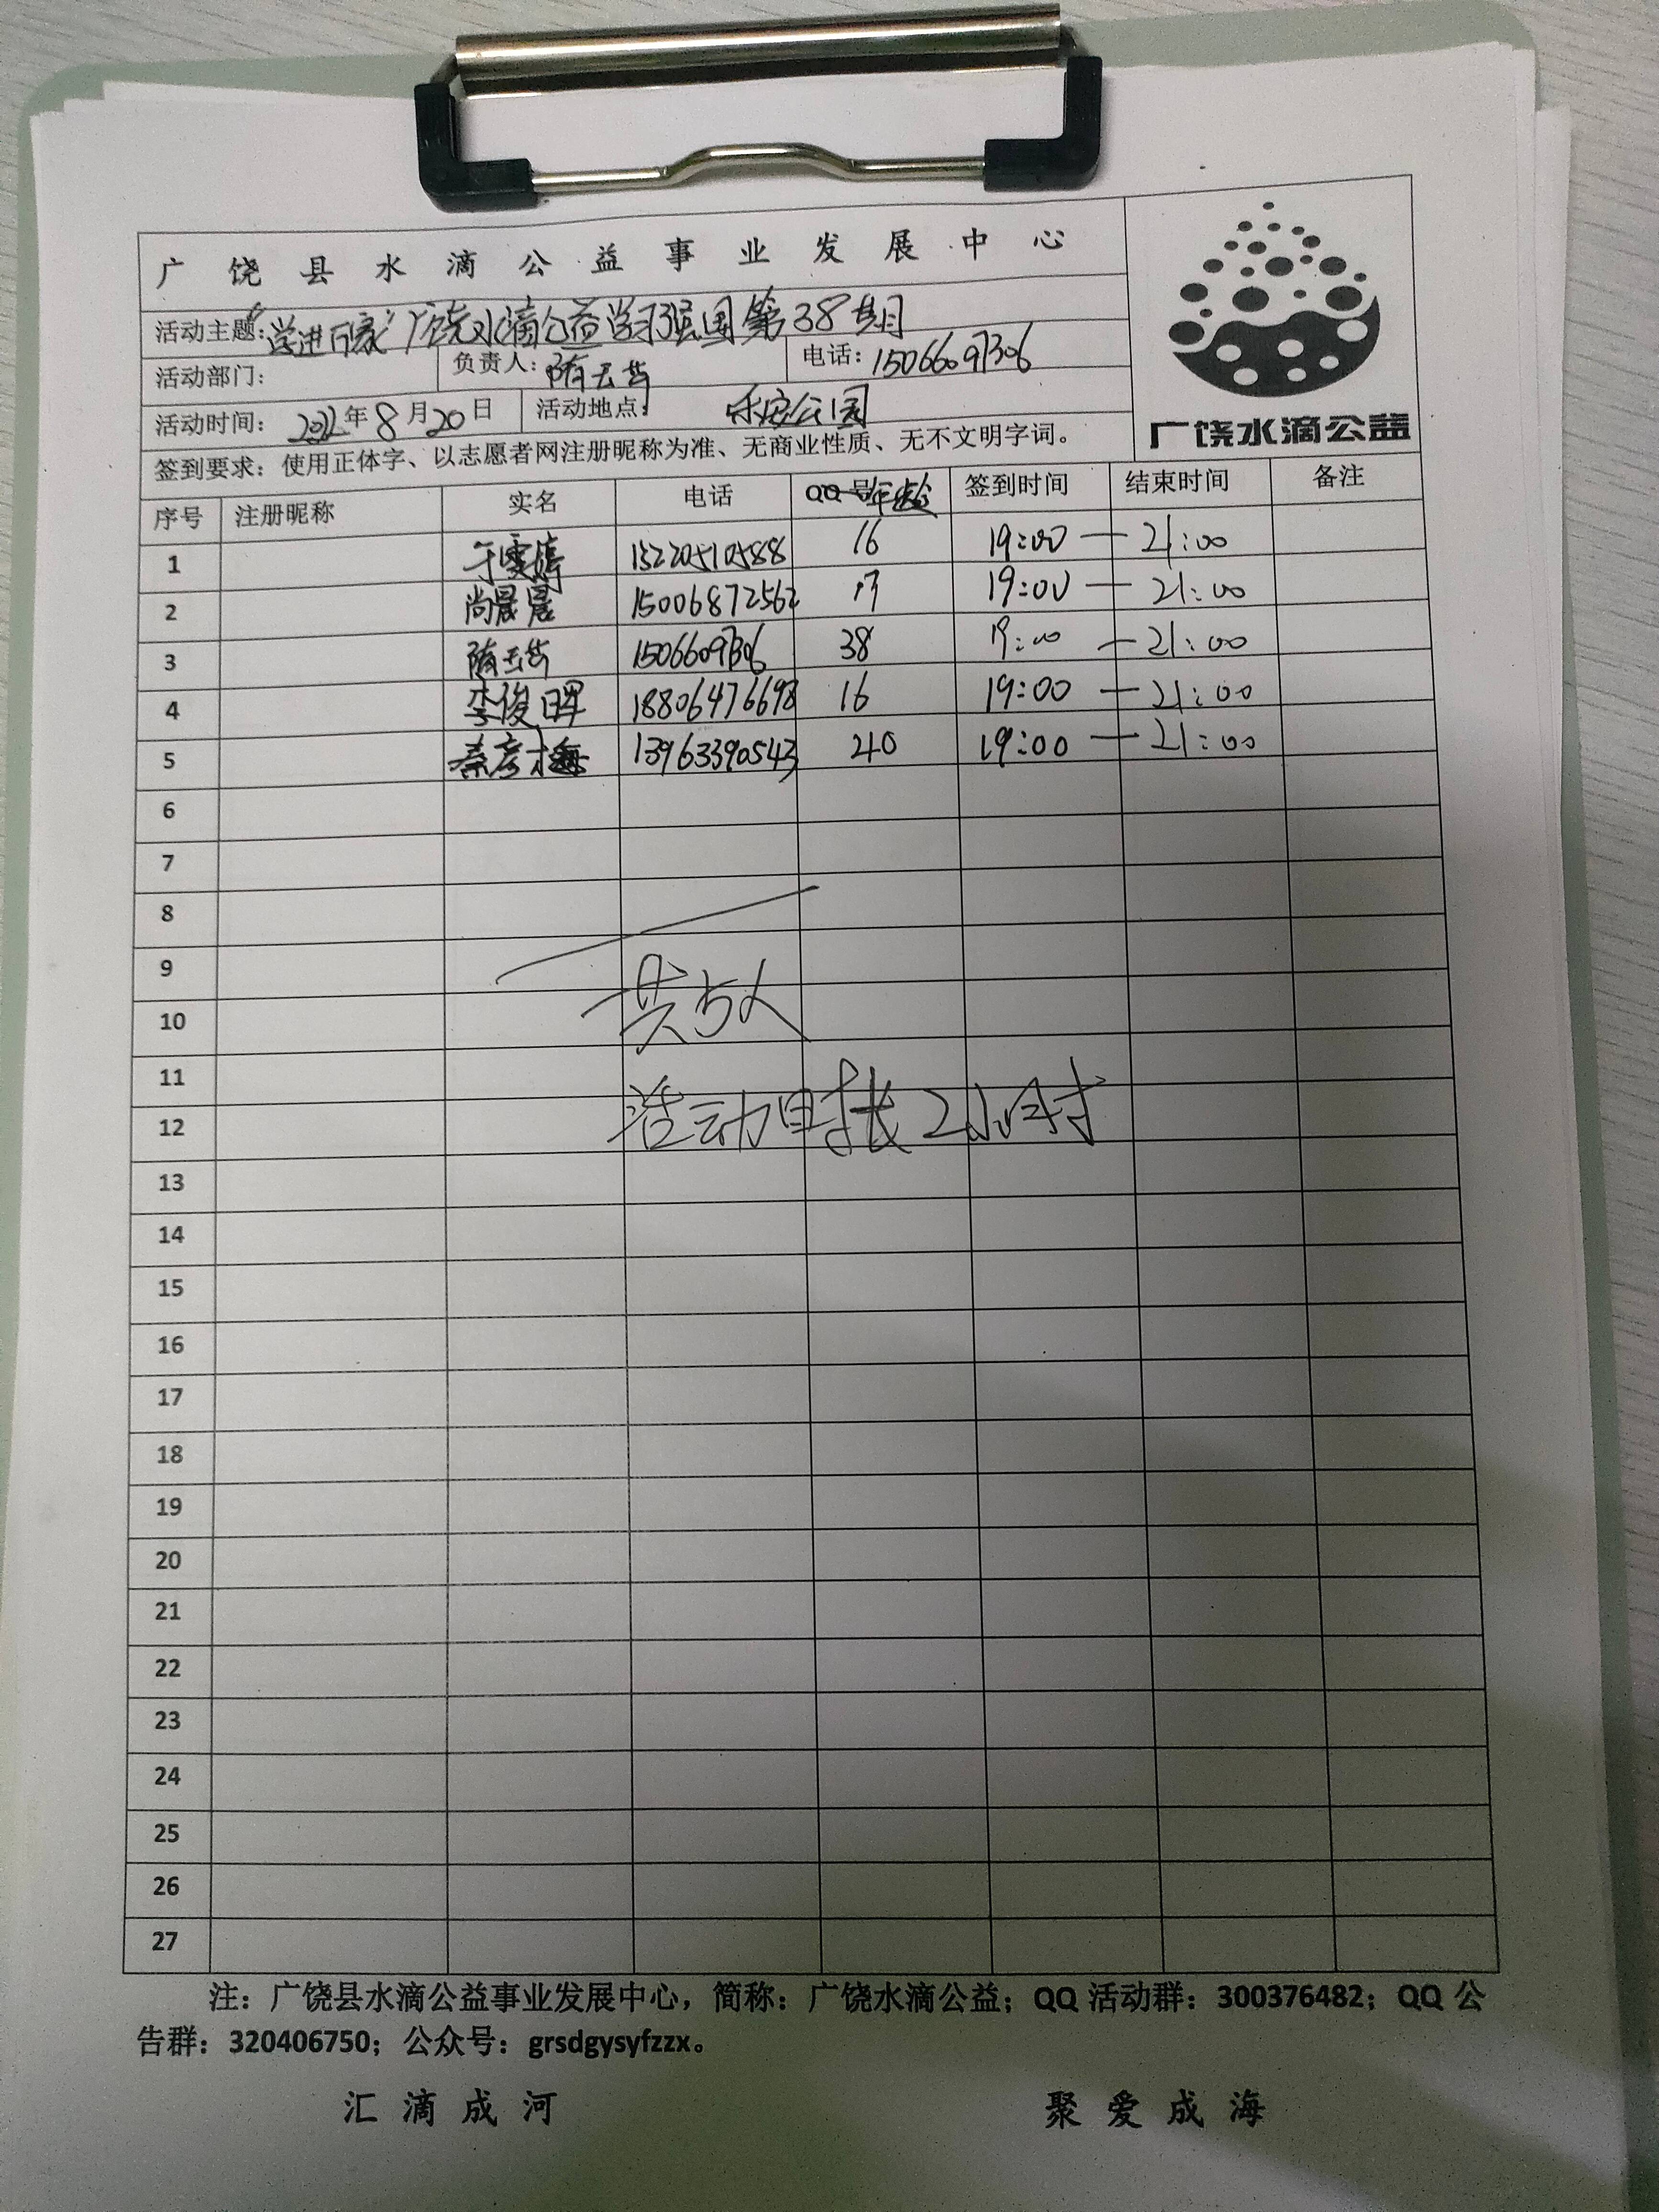 广饶县水滴公益事业发展中心
活动主题:“学进百家”广饶水滴公益学习强国第38期
活动部门: 负责人: 隋云芸 电话: 15066097306
活动时间: 2022年8月20日 活动地点: 乐安公园
广饶水滴公益
签到要求:使用正体字、以志愿者网注册昵称为准、无商业性质、无不文明字词。
序号 注册昵称 实名 电话 QQ号 年龄 签到时间 结束时间 备注
1 于雯婷 15220510588 16 19:00 — 21:00
2 尚晨晨 15006872562 17 19:00 — 21:00
3 隋云芸 15066097306 38 19:00 — 21:00
4 李俊晖 18806476698 16 19:00 — 21:00
5 秦彦梅 13963390543 40 19:00 — 21:00
6
7
8
9
共5人
10
11
活动时长2小时
12
13
14
15
16
17
18
19
20
21
22
23
24
25
26
27
注:广饶县水滴公益事业发展中心,简称:广饶水滴公益;QQ活动群:300376482;QQ公
告群:320406750;公众号:grsdgysyfzzx。
汇滴成河 聚爱成海